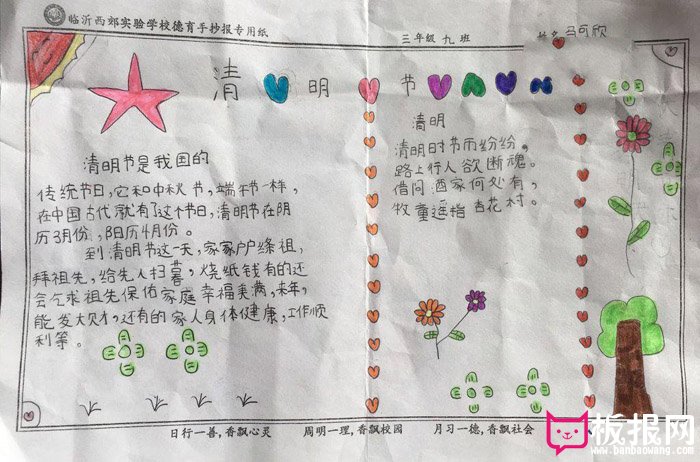 临沂西郊实验学校德育手抄报专用纸
三年级 九班
姓名 马可欣
清 明 节
清明节是我国的
传统节日,它和中秋节,端午节一样,
在中国古代就有了这个节日,清明节在阴
历3月份,阳历4月份。
到清明节这一天,家家户户缔祖,
拜祖先,给先人扫暮,烧纸钱有的还
会乞求祖先保佑家庭幸福美满,来年,
能发大财,还有的家人身体健康,工作顺
利等。
清明
清明时节雨纷纷,
路上行人欲断魂。
借问酒家何处有,
牧童遥指杏花村。
日行一善,香飘心灵 周明一理,香飘校园 月习一德,香飘社会
板报网
www.banbaowang.com